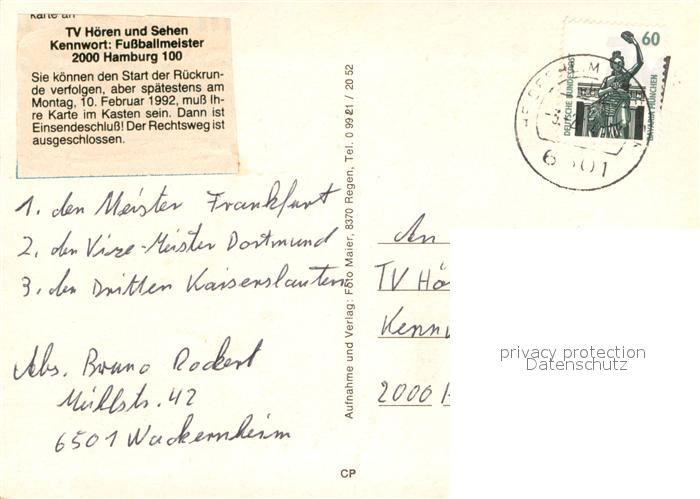 Karte an
TV Hören und Sehen
Kennwort: Fußballmeister
2000 Hamburg 100
Sie können den Start der Rückrun-
de verfolgen, aber spätestens am
Montag, 10. Februar 1992, muß Ih-
re Karte im Kasten sein. Dann ist
Einsendeschluß! Der Rechtsweg ist
ausgeschlossen.
1. den Meister Frankfurt
2. den Vize-Meister Dortmund
3. den Dritten Kaiserslautern
Abs. Bruno Rockert
Mühlstr. 42
6501 Wackernheim
Aufnahme und Verlag: Foto Maier, 8370 Regen, Tel. 0 99 21 / 20 52
CP
60
DEUTSCHE BUNDESPOST
BAVARIA MÜNCHEN
6501
An
TV Hö
Kenn
2000
privacy protection
Datenschutz